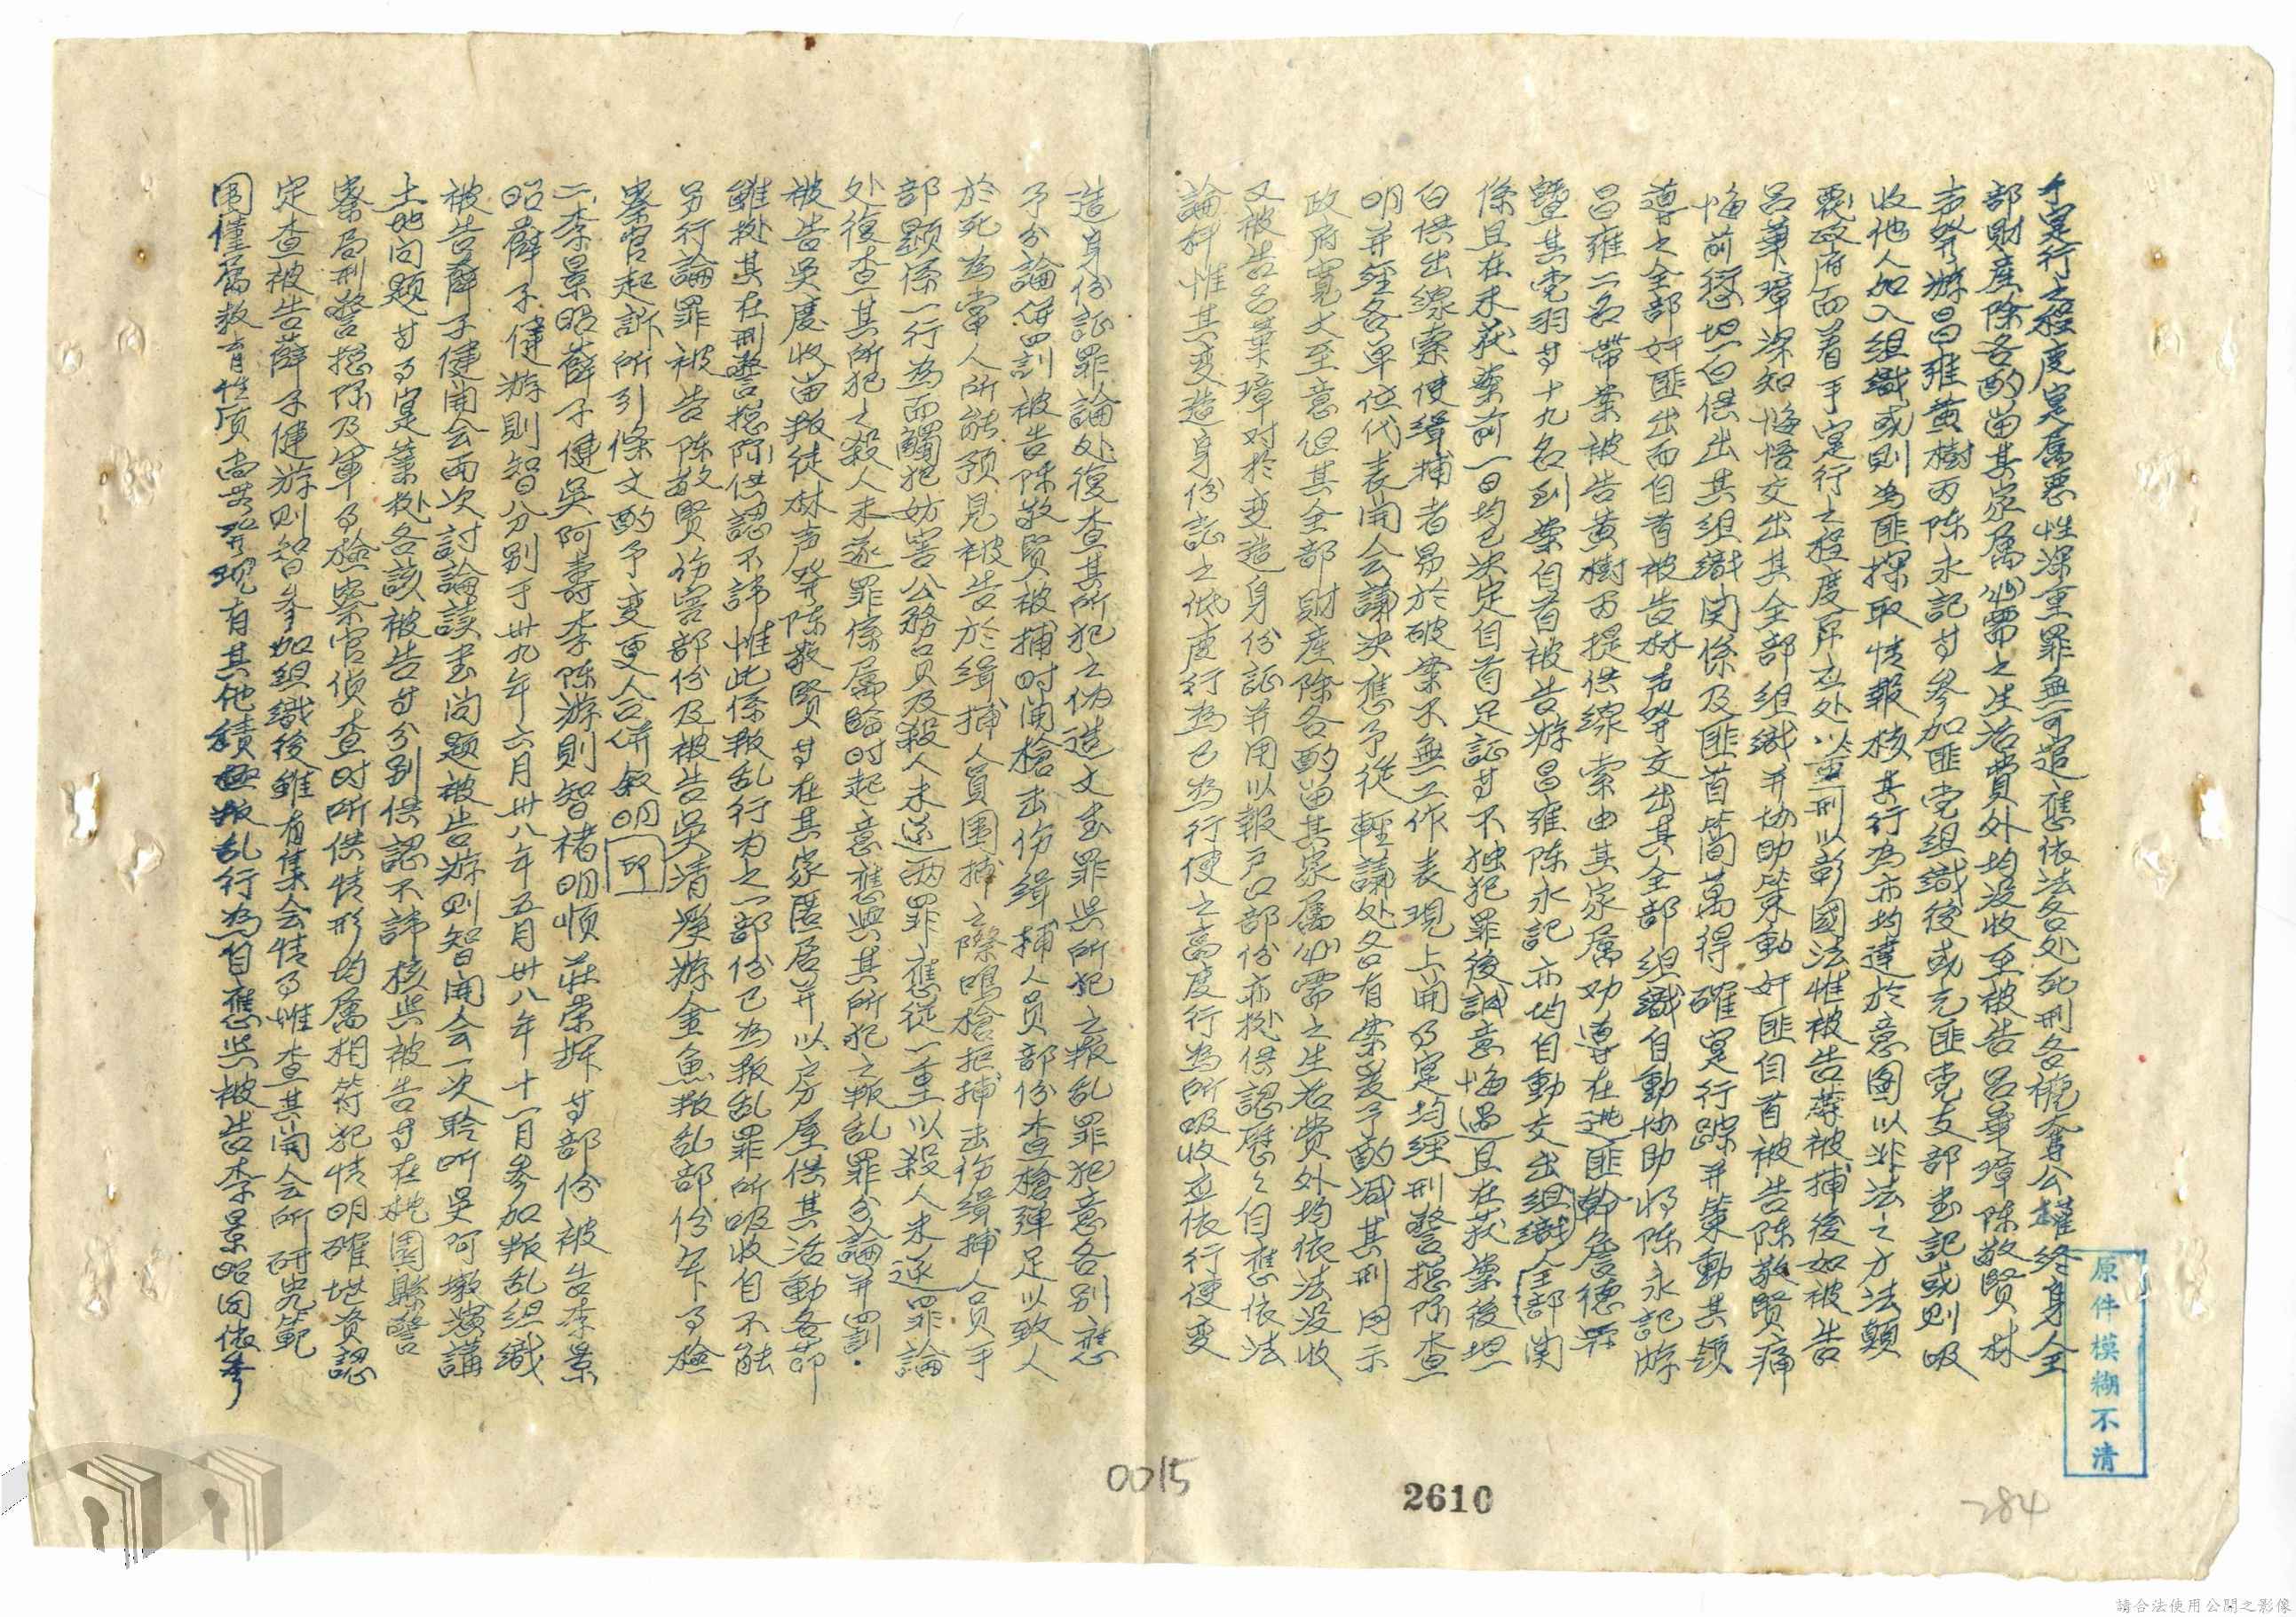 手實行之程度實屬惡性深重罪無可逭應依法各处死刑各褫奪公權終身全
部財產除各酌留其家屬必需之生活費外均沒收至被告呂華璋陳敬賢林
希發游昌雍黄樹丙陳永記甘參加匪党組織後或充匪党支部書記或則吸
收他人加入組織或則為匪探取情報核其行為亦均達於意圖以非法之方法顛
覆政府而着手實行之程度原应处以重刑以彰國法惟被告等被捕後如被告
呂華璋深知悔悟交出其全部組織并协助策動奸匪自首被告陳敬賢痛
悔前愆坦白供出其組織関係及匪首簡萬得確實行踪并策動其領
導之全部奸匪出而自首被告林希發交出其全部組織自動协助將陳永記游
昌雍二名帶案被告黄樹丙提供線索由其家属劝導在逃匪幹詹德霖
暨其党羽甘十九名到案自首被告游昌雍陳永記亦均自動交出組織全部関
係且在未获案前一日均已决定自首足証甘不独犯罪後誠意悔過且在获案後坦
白供出線索使緝捕者易於破案不無工作表現上開事實均經刑警總隊查
明并經各单位代表開会議决應予從輕議处各有案爰予酌減其刑用示
政府寬大至意但其全部財產除各酌留其家属必需之生活費外均依法没收
又被告呂華璋对於变造身份証并用以報户口部份亦據供認歷歷自應依法
論科惟其变造身份証之低度行為已為行使之高度行為所吸收应依行使变
造身份証罪論处復查其所犯之伪造文書罪與所犯之叛乱罪犯意各別應
予分論併罰被告陳敬賢被捕时開槍击伤緝捕人員部份查槍彈足以致人
於死為常人所能預見被告於緝捕人員围捕之際鳴槍拒捕击伤緝捕人員手
部顕係一行為而觸犯妨害公務員及殺人未遂兩罪應從一重以殺人未遂罪論
处復查其所犯之殺人未遂罪係屬臨时起意應與其所犯之叛乱罪分論并罰.
被告吳慶收留叛徒林声發陳敬賢甘在其家匿居并以房屋供其活動各節
雖據其在刑警總隊供認不諱惟此係叛乱行为之一部份已為叛乱罪所吸收自不能
另行論罪被告陳敬賢伤害部份及被告吳清發游金魚叛乱部份軍事檢
察官起訴所引條文酌予变更合併叙明
二、李景昭薛子健吳阿壽李陳游則智禇明顺莊榮輝甘部份被告李景
昭薛子健游則智分別于卅九年六月卅八年五月卅八年十一月參加叛乱組織
被告薛子健開会兩次討論讀書問题被告游则智開会一次聆听吳阿墩演講
土地问题甘事實業據各該被告甘分別供認不諱核與被告甘在桃園縣警
察局刑警總隊及軍事檢察官侦查时所供情形均属相符犯情明確堪资認
定查被告薛子健游则智參加組織後雖有集会情事惟查其開会所研究範
围僅屬教育性质尚無發現有其他積極叛乱行為自應與被告李景昭同依參
原件模糊不清
0015
2610
284
請合法使用公開之影像